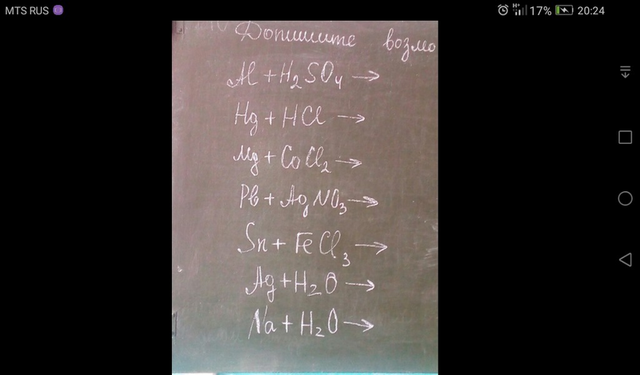 MTS RUS 17% 20:24
Допишите возмо
Al + H₂SO₄ →
Hg + HCl →
Mg + CoCl₂ →
Pb + AgNO₃ →
Sn + FeCl₃ →
Ag + H₂O →
Na + H₂O →